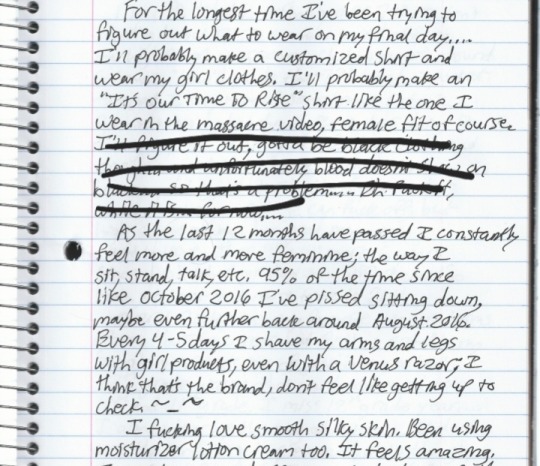 For the longest time I've been trying to
figure out what to wear on my final day....
I'll probably make a customized shirt and
wear my girl clothes. I'll probably make an
"It's our Time To Rise" shirt like the one I
wear in the massacre video, female fit of course.
I'll figure it out, gotta be black clothing
though and unfortunately blood doesn't show on
so that's a problem....
for now....
As the last 12 months have passed I constantly
feel more and more feminine; the way I
sit, stand, talk, etc. 95% of the time since
like october 2016 I've pissed sitting down,
maybe even further back around August 2016.
Every 4-5 days I shave my arms and legs
with girl products, even with a Venus razor, I
think that's the brand, don't feel like getting up to
check ~_~
I fucking love smooth silky skin. Been using
moisturizer lotion cream too. It feels amazing,